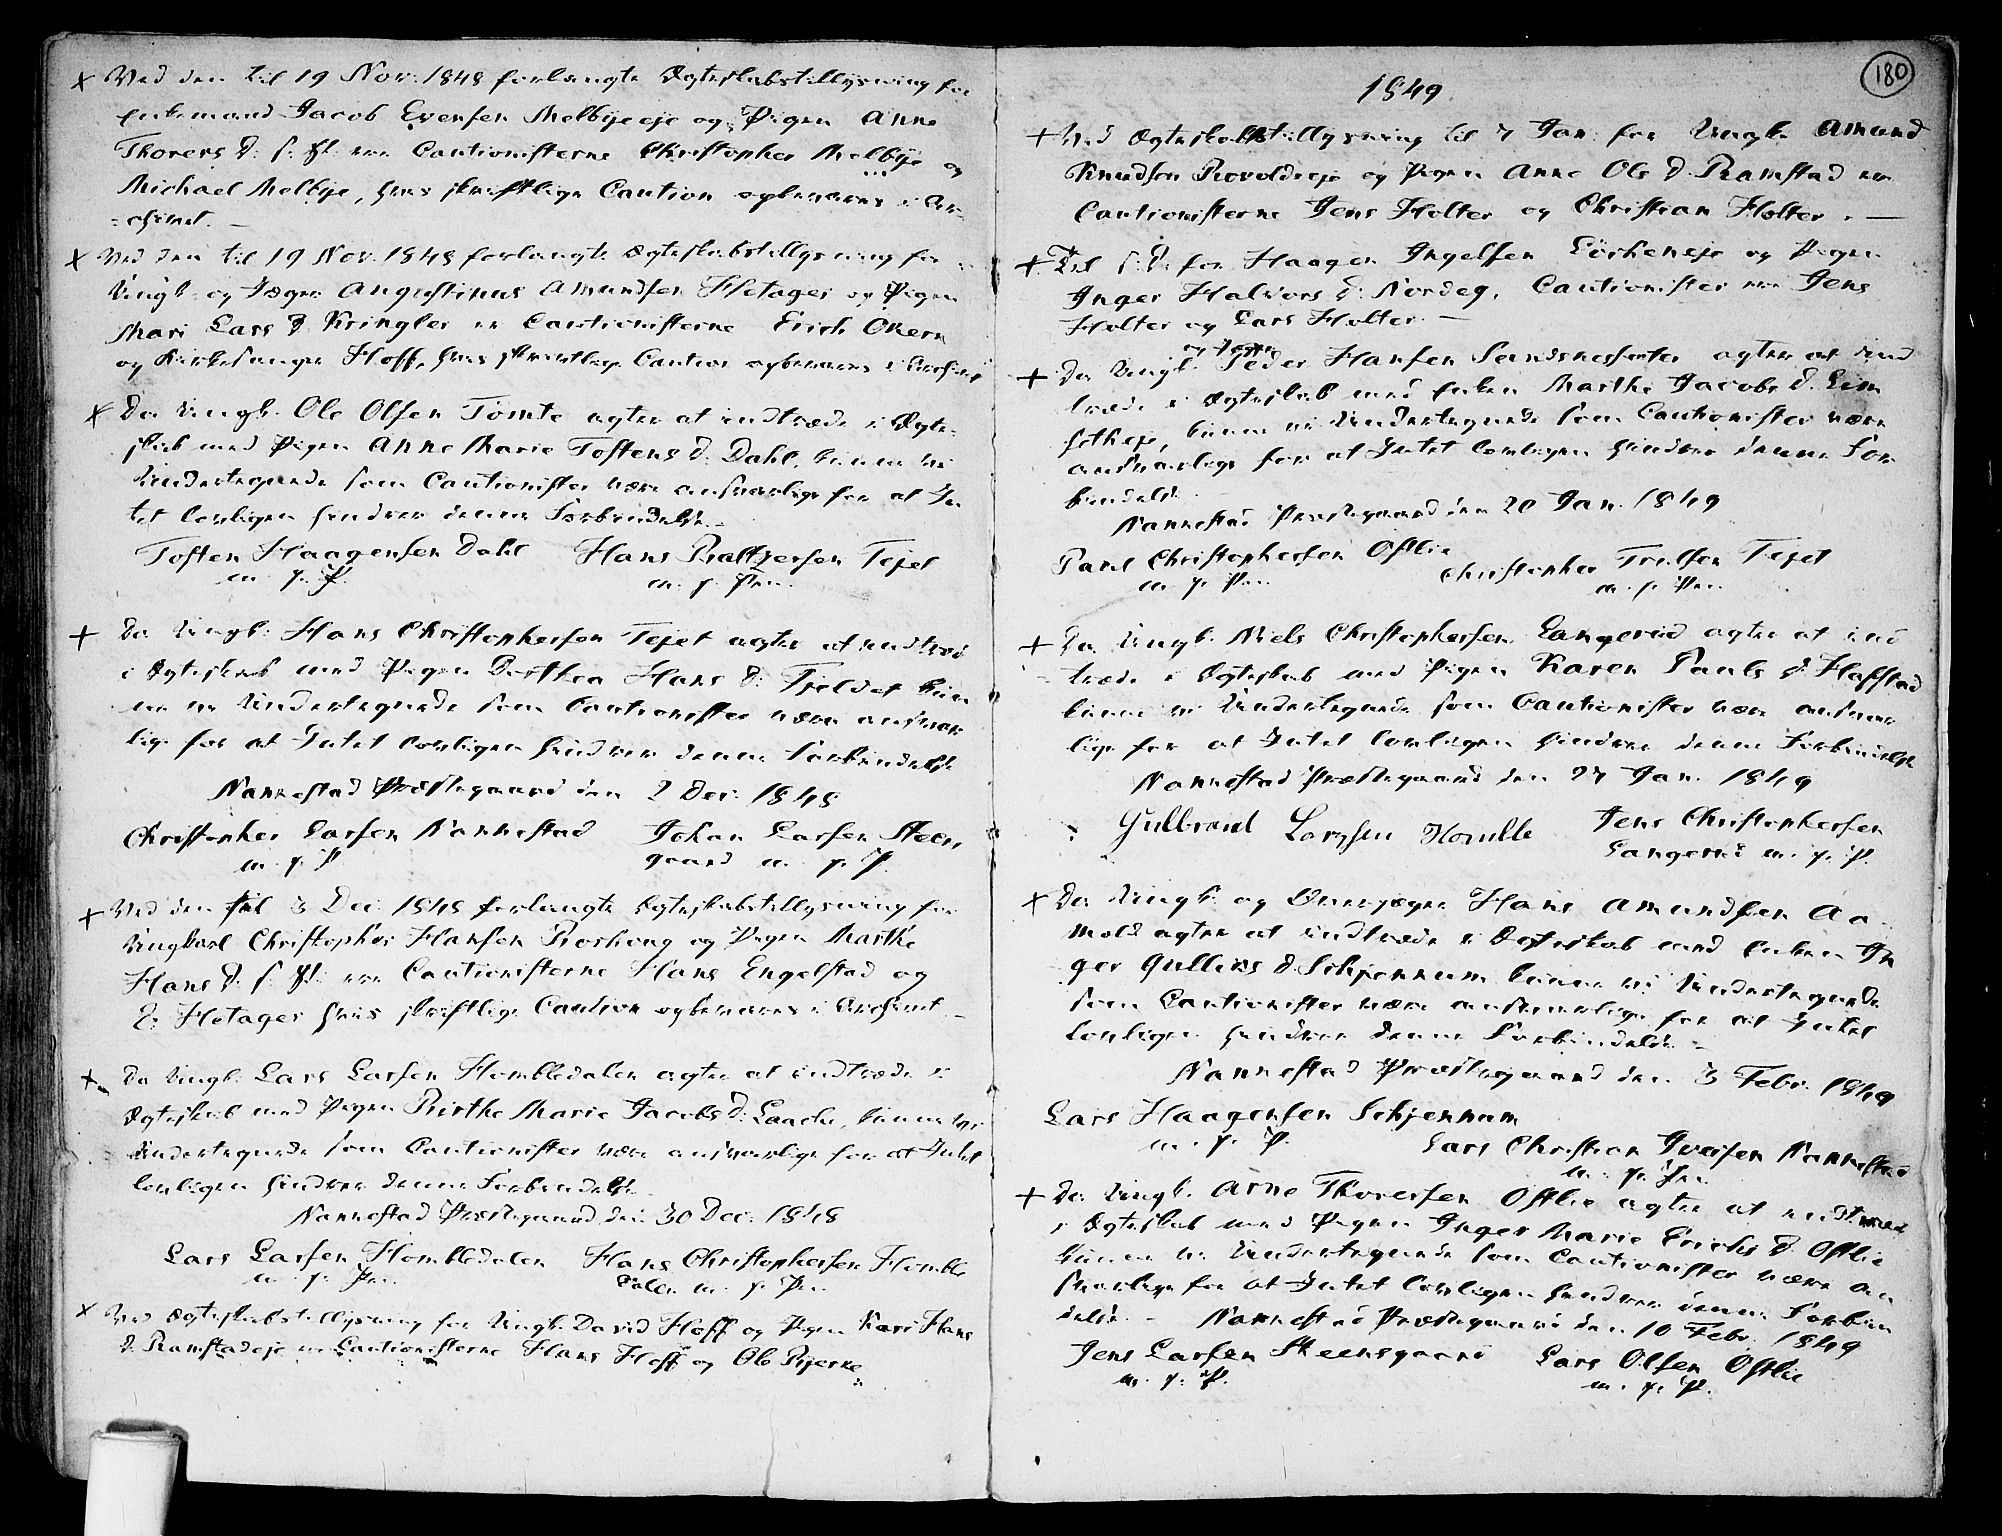 + Ved den til 19 Nov. 1848 forlangte Ægteskabstillysning for
Enkemand Jacob Evensen Melbyeeje og Pigen Anne
Thorers D. s. St. ere Cautionisterne Christopher Melbye og
Michael Melbye, hvis skriftlige Caution opbevares i Ar-
-chivet. -
+ Ved den til 19 Nov. 1848 forlangte Ægteskabstillysning for
Ungk. og Jæger Augustinus Amundsen Hotager og Pigen
Mari Lars D. Kringler er Cautionisterne Erich Okern
og Kirkesanger Hoff, hvis skriftlige Caution opbevares i Archivet
+ Da Ungk. Ole Olsen Tomte agter at indtræde i Ægte-
skab med Pigen Anne Marie Tostens D. Dahl, kunne vi
Undertegnede som Cautionister være ansvarlige for at In-
tet lovligen hindrer denne Forbindelse. -
Tosten Haagensen Dahl Hans Baltzersen Tejet
m. p. P. m. p. Pen.
+ Da Ungk. Hans Christophersen Tejet agter at indtræde
i Ægteskab med Pigen Dorthea Hans D. Tjeldet kun
ne vi Undertegnede som Cautionister være ansvar
lige for at Intet lovligen hindrer denne Forbindelse
Nannestad Præstegaard den 2 Dec. 1848
Christopher Larsen Nannestad Johan Larsen Steens
m. p. P gaard m. p. P.
+ Ved den til 3 Dec. 1848 forlangte Ægteskabstillysning for
Ungkarl Christopher Hansen Roshoug og Pigen Marthe
Hans D. s. St. ere Cautionisterne Hans Engelstad og
Hotager hvis skriftlige Caution opbevares i Archivet -
+ Da Ungk. Lars Larsen Hombledalen agter at indtræde i
Ægteskab med Pigen Birthe Marie Jacobs D. Laache, kunne vi
Undertegnede som Cautionister være ansvarlige for at Intet
lovligen hindrer denne Forbindelse
Nannestad Præstegaard den 30 Dec. 1848
Lars Larsen Hombledalen Hans Christophersen Homble
m. p. Pen. dalen m. p. Pen
+ Ved Ægteskabstillysning for Ungk. David Hoff og Pigen Kari Hans
D. Ramstadeje ere Cautionisterne Hans Hoff og Ole Bjerke
180
1849
+ Ved Ægteskabstillysning til 7 Jan. for Ungk. Amund
Knudsen Rovoldseje og Pigen Anne Ols D. Ramstad ere
Cautionisterne Jens Holter og Christian Holter. -
+ Til s. D. for Haagen Ingelsen Lörkeneje og Pigen
Inger Halvors D. Nordeg, Cautionister ere Jens
Holter og Lars Holter. -
og Jæger
+ Da Ungk. Peder Hansen Sandsneseter agter at ind
træde i Ægteskab med Enken Marthe Jacobs D. Lim
kunne vi Undertegnede som Cautionister være
ansvarlige for at Intet lovligen hindrer denne For
bindelse.
Nannestad Præstegaard den 20 Jan. 1849
Paul Christophersen Østlie Christopher Trulsen Tejet
m. p. Pen. m. p. Pen.
+ Da Ungk. Niels Christophersen Langerud agter at ind
træde i Ægteskab med Pigen Karen Pauls D. Haffstad
kunne vi Undertegnede som Cautionister være ansvar
lige for at Intet lovligen hindrer denne Forbindelse
Nannestad Præstegaard den 27 Jan. 1849
Gulbrand Larssen Homble Jens Christophersen
Langerud m. p. P.
+ Da Ungk. og Overjæger Hans Amundsen Aa-
mold agter at indtræde i Ægteskab med Enken In
ger Gullivs D. Schjennum kunne vi Undertegnede
som Cautionister være ansvarlige for at Intet
lovligen hindrer denne Forbindelse -
Nannestad Præstegaard den 3 Febr. 1849
Lars Haagensen Schjennum
m. p. P. Lars Christian Iversen Nannestad
m. p. Pen.
+ Da Ungk. Arne Thorersen Østlie agter at indtræde
i Ægteskab med Pigen Inger Marie Erichs D. Østlie
kunne vi Undertegnede som Cautionister være an
svarlige for at Intet lovligen hindrer denne Forbin
delse. - Nannestad Præstegaard den 10 Febr. 1849
Jens Larsen Steensgaard Lars Olsen Østlie
m. p. P. m. p. P.